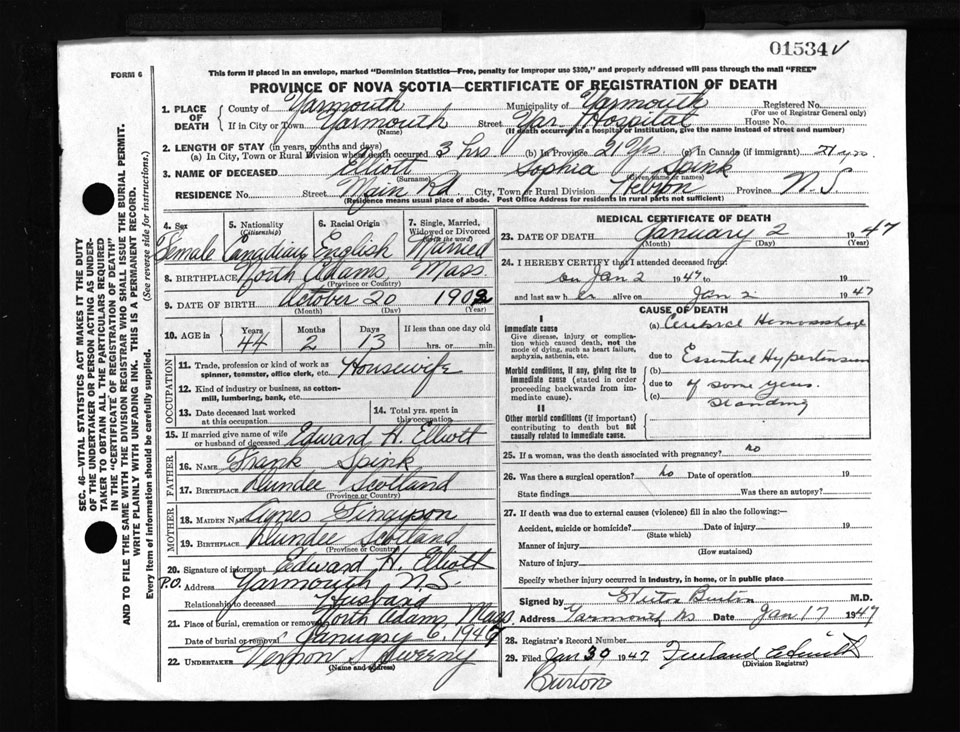 01534 ✓
FORM 6
This form if placed in an envelope, marked "Dominion Statistics—Free, penalty for improper use $300," and properly addressed will pass through the mail "FREE"
PROVINCE OF NOVA SCOTIA—CERTIFICATE OF REGISTRATION OF DEATH
SEC. 46—VITAL STATISTICS ACT MAKES IT THE DUTY
OF THE UNDERTAKER OR PERSON ACTING AS UNDER-
TAKER TO OBTAIN ALL THE PARTICULARS REQUIRED
IN THE "CERTIFICATE OF REGISTRATION OF DEATH"
AND TO FILE THE SAME WITH THE DIVISION REGISTRAR WHO SHALL ISSUE THE BURIAL PERMIT.
WRITE PLAINLY WITH UNFADING INK. THIS IS A PERMANENT RECORD.
Every item of information should be carefully supplied. (See reverse side for instructions.)
1. PLACE OF DEATH County of Yarmouth Municipality of Yarmouth Registered No.
(For use of Registrar General only)
If in City or Town Yarmouth Street Yar. Hospital House No.
(Name) (If death occurred in a hospital or institution, give the name instead of street and number)
2. LENGTH OF STAY (in years, months and days)
(a) In City, Town or Rural Division where death occurred 3 hrs (b) In Province 21 Yrs (c) In Canada (if immigrant) 21 yrs.
3. NAME OF DECEASED Elliott Sophia Spink
(Surname) (Given name or names)
RESIDENCE No. Street Main Rd City, Town or Rural Division Hebron Province N.S.
(Residence means usual place of abode. Post Office Address for residents in rural parts not sufficient)
4. Sex 5. Nationality (Citizenship) 6. Racial Origin 7. Single, Married, Widowed or Divorced (write the word)
Female Canadian English Married
8. BIRTHPLACE North Adams Mass
(Province or Country)
9. DATE OF BIRTH October 20 1902
(Month) (Day) (Year)
10. AGE in Years Months Days If less than one day old
44 2 13 hrs. or min.
OCCUPATION
11. Trade, profession or kind of work as spinner, teamster, office clerk, etc. Housewife
12. Kind of industry or business, as cotton-mill, lumbering, bank, etc.
13. Date deceased last worked at this occupation
14. Total yrs. spent in this occupation
15. If married give name of wife or husband of deceased Edward H. Elliott
FATHER
16. NAME Frank Spink
17. BIRTHPLACE Dundee Scotland
(Province or Country)
MOTHER
18. MAIDEN NAME Agnes Finayson
19. BIRTHPLACE Dundee Scotland
(Province or Country)
20. Signature of informant Edward H. Elliott
P.O. Address Yarmouth N.S.
Relationship to deceased Husband
21. Place of burial, cremation or removal North Adams, Mass.
Date of burial or removal January 6, 1947
22. UNDERTAKER Vernon Sweeny
(Name and address)
MEDICAL CERTIFICATE OF DEATH
23. DATE OF DEATH January 2 1947
(Month) (Day) (Year)
24. I HEREBY CERTIFY that I attended deceased from:
on Jan 2 1947 to 19
and last saw her alive on Jan 2 1947
CAUSE OF DEATH
I
Immediate cause
Give disease, injury or complication which caused death, not the mode of dying, such as heart failure, asphyxia, asthenia, etc.
(a) Cerebral Hemorrhage
due to
Morbid conditions, if any, giving rise to immediate cause (stated in order proceeding backwards from immediate cause).
(b) Essential Hypertension
due to
(c) of some years. standing
II
Other morbid conditions (if important) contributing to death but not causally related to immediate cause.
25. If a woman, was the death associated with pregnancy? no
26. Was there a surgical operation? no Date of operation 19
State findings Was there an autopsy?
27. If death was due to external causes (violence) fill in also the following:—
Accident, suicide or homicide? Date of injury 19
(State which)
Manner of injury
(How sustained)
Nature of injury
Specify whether injury occurred in industry, in home, or in public place
Signed by Burton M.D.
Address Yarmouth NS Date Jan 17 1947
28. Registrar's Record Number
29. Filed Jan 30 1947
(Division Registrar)
Burton